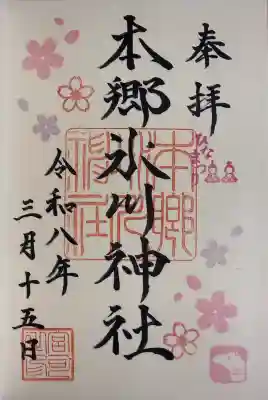 奉拝
ひなまつり
本郷氷川神社
本郷氷川神社
令和八年
三月十五日